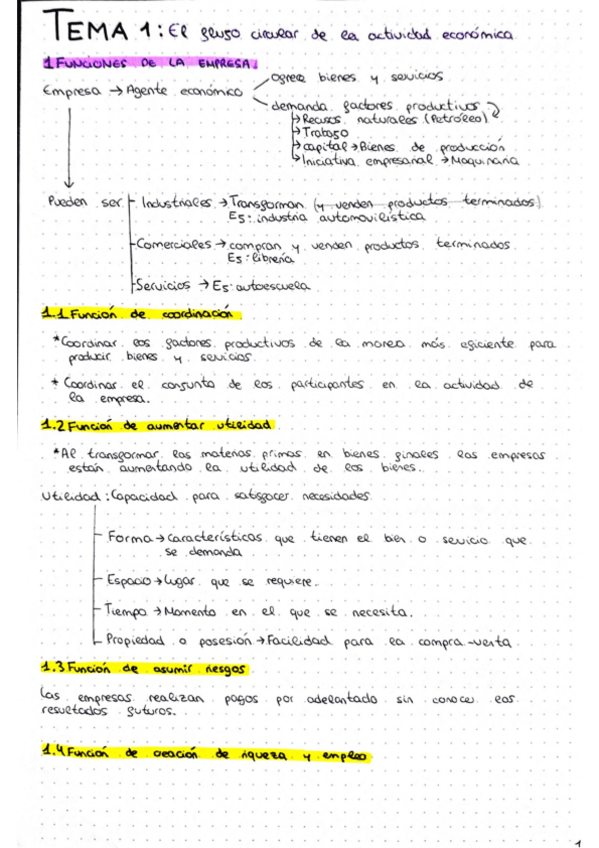 TEMA 1: El flujo circular de la actividad económica
1 FUNCIONES DE LA EMPRESA
Empresa → Agente económico
ofrece bienes y servicios
demanda factores productivos
→ Recursos naturales (Petróleo)
→ Trabajo
→ capital → Bienes de producción
→ Iniciativa empresarial → Maquinaria
Pueden ser
Industriales → Transforman (y venden productos terminados)
Ej: industria automovilística
Comerciales → compran y venden productos terminados
Ej: librería
Servicios → Ej: autoescuela
1.1 Función de coordinación
*Coordinar los factores productivos de la manera más eficiente para
producir bienes y servicios
* Coordinar el conjunto de los participantes en la actividad de
la empresa.
1.2 Función de aumentar utilidad
*Al transformar las materias primas en bienes finales las empresas
están aumentando la utilidad de los bienes.
Utilidad: Capacidad para satisfacer necesidades
Forma → Características que tienen el bien o servicio que
se demanda
Espacio → Lugar que se requiere.
Tiempo → Momento en el que se necesita.
Propiedad o posesión → Facilidad para la compra-venta
1.3 Función de asumir riesgos
Las empresas realizan pagos por adelantado sin conocer los
resultados futuros.
1.4 Función de creación de riqueza y empleo
1